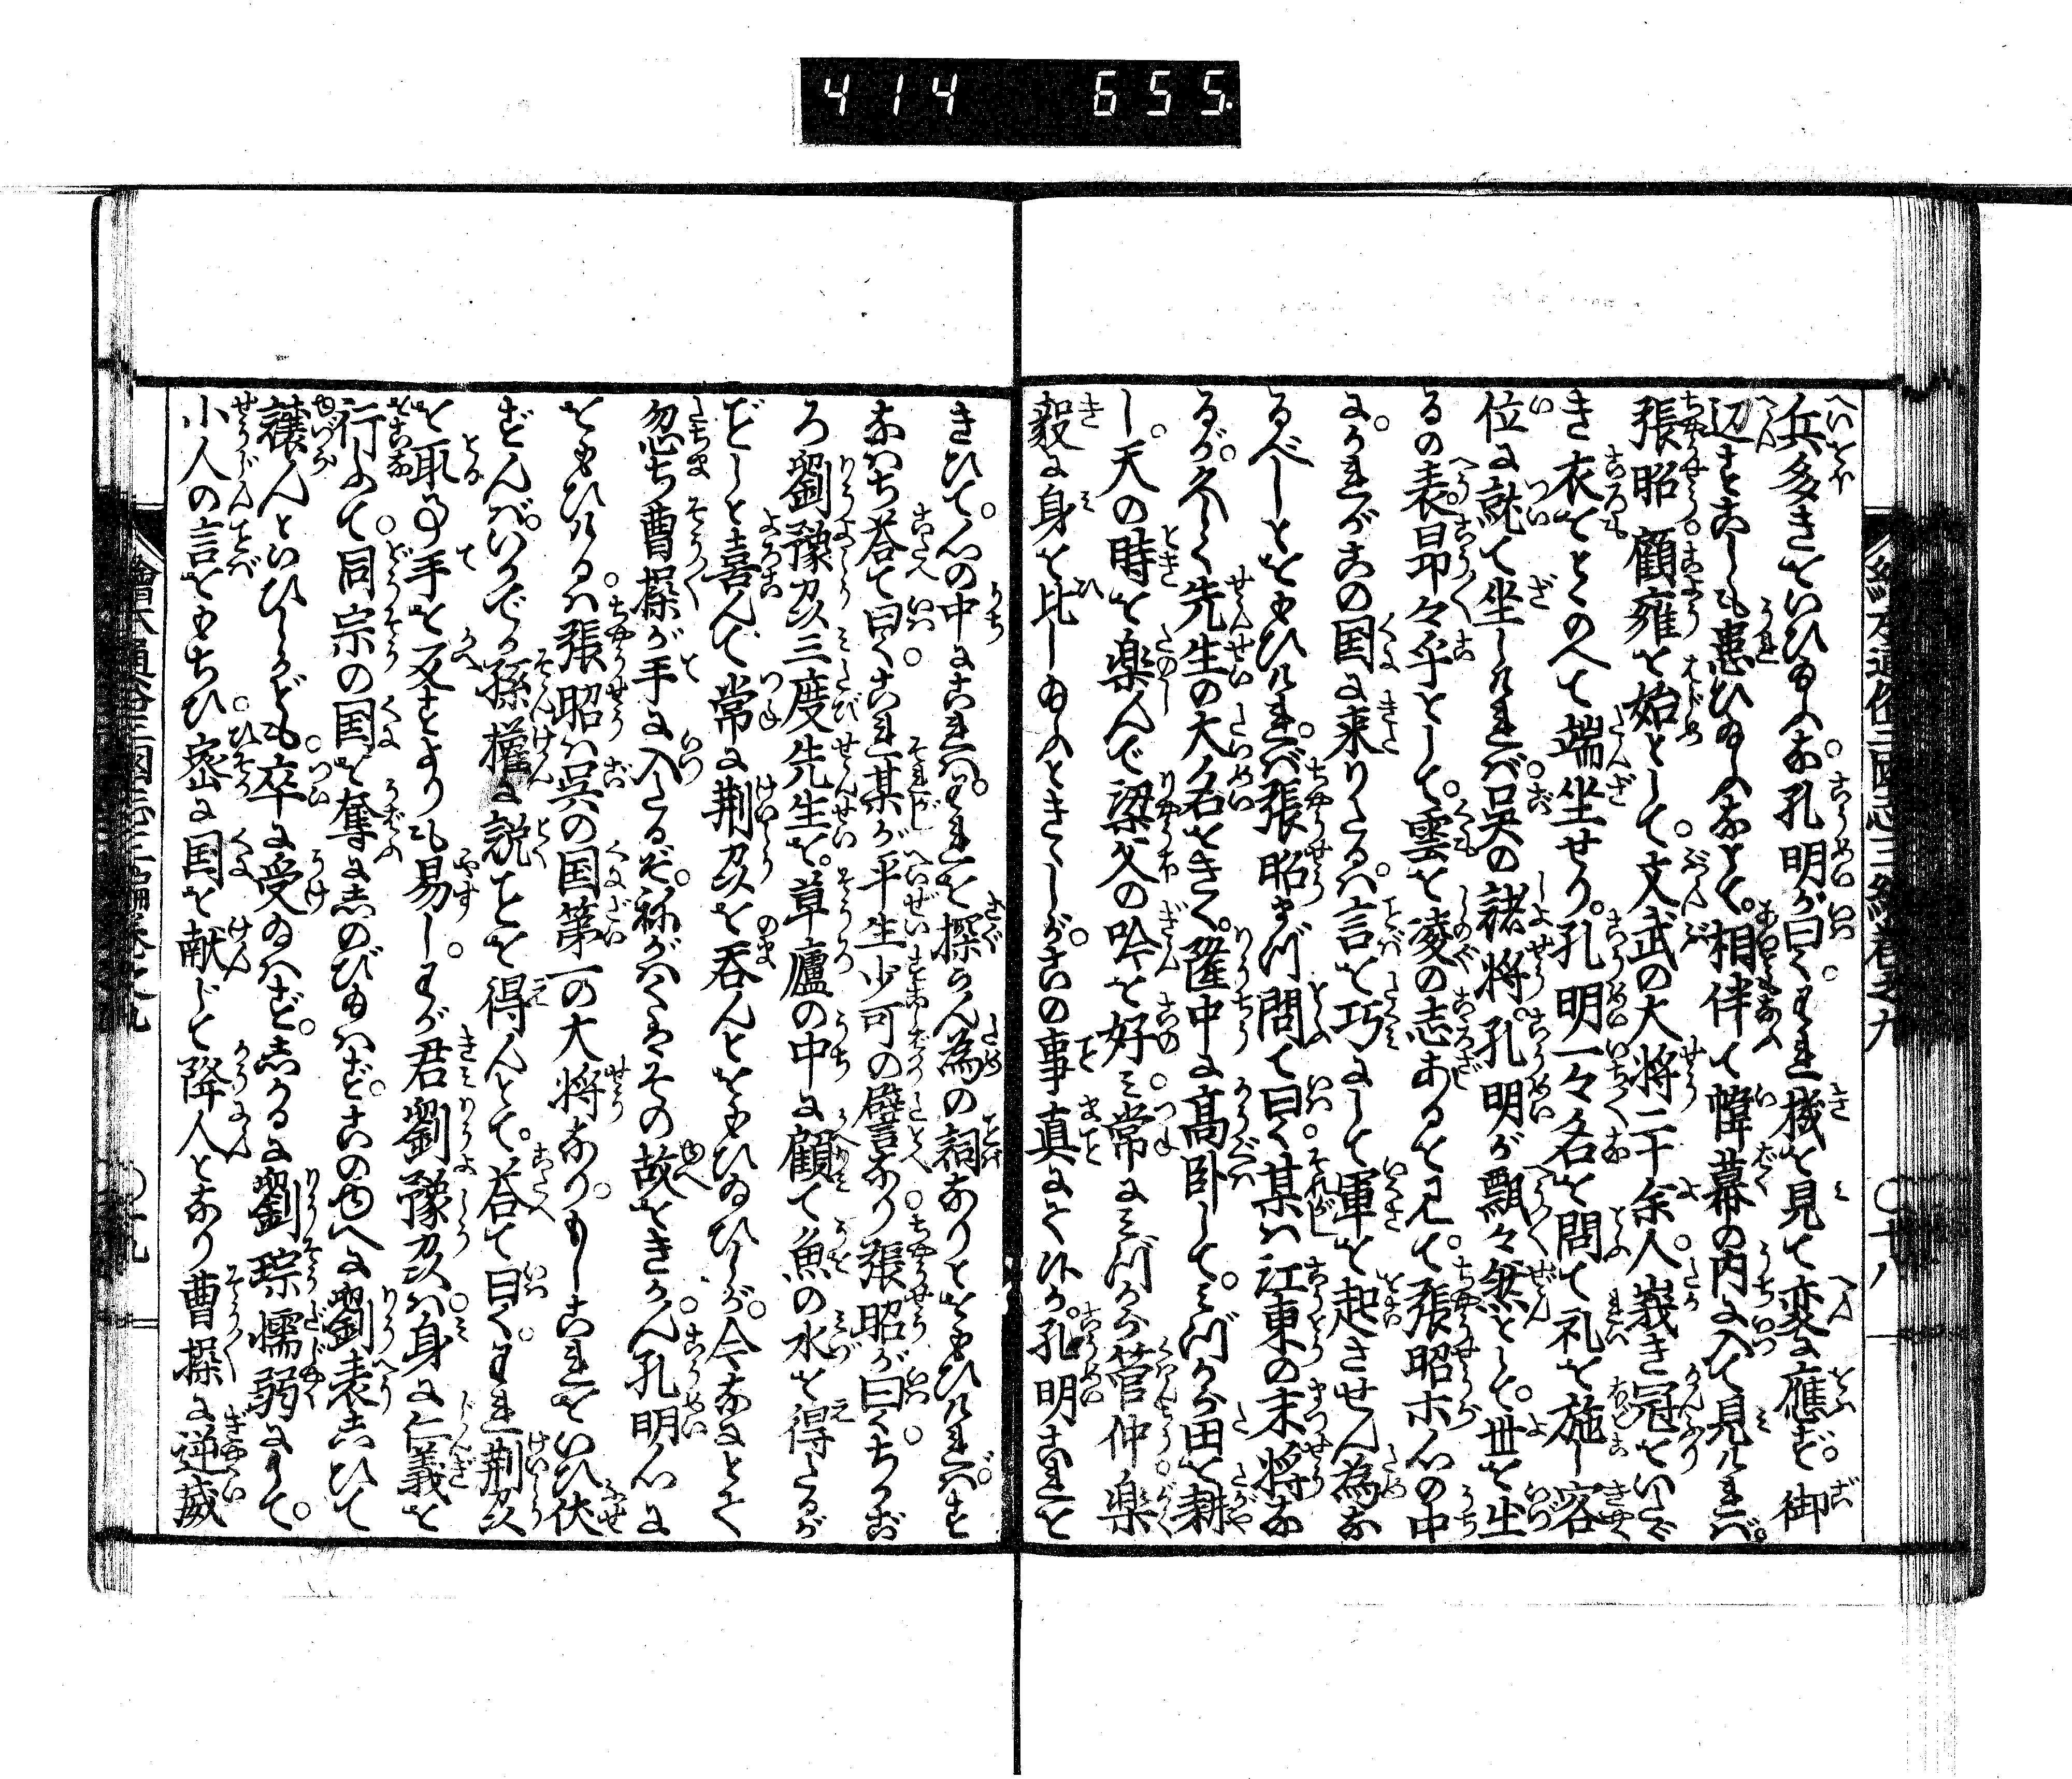 414 655.
繪本通俗三國志三編卷之九 〇十八
兵多きをいひ給ふな。孔明が曰く。われ機を見て変に應ず。御
辺さこしも患ひ給ふなとて。相伴て幃幕の内に入て見れば。
張昭。顧雍を始として。文武の大将二十余人。峩き冠をいたゞ
き衣をとゝのへて端坐せり。孔明一々名を問て礼を施し容
位に就て坐しければ。吳の諸将。孔明が飄々然として。世を出
るの表。昂々乎として。雲を凌の志あるを見て。張昭ホ心の中
に。かれがこの国に来りたるハ。言を巧にして軍を起させん為な
るべしとをもひければ。張昭まづ問て曰く。某ハ江東の末将な
るが。久しく先生の大名をきく。隆中に高卧して。みづから田を耕
し。天の時を楽んで梁父の吟を好ミ。常にみづから管仲。楽
毅に身を比し給ふときゝしが。この事真にて候か。孔明これを
きひて。心の中にこれハ。われを探らん為の詞なりとをもひければ。す
なハち答て曰く。これ某が平生少可の譬なり。張昭が曰く。ちかご
ろ劉豫州三度先生を。草廬の中に顧て魚の水を得たるが
ごとしと喜んで常に荆州を吞んとをもひゐひしが。今なにとて
忽ち曹操が手に入たるぞ。祢がハくハその故をきかん。孔明心に
をもひけるハ。張昭ハ吳の国第一の大将なり。もしこれをいひ伏
ずんバ。いかでか孫權に説ことを得んとて。答て曰く。われ荆州
を取る事手を反すよりも易し。わが君劉豫州ハ身に仁義を
行ふて。同宗の国を奪に忍のび給ハず。このゆへに劉表しひて
讓んといひしかども。卒に受ゐハず。しかるに劉琮懦弱にして。
小人の言をもちひ。密に国を献じて降人となり曹操に逆威
繪本通俗三國志三編卷之九 〇十九